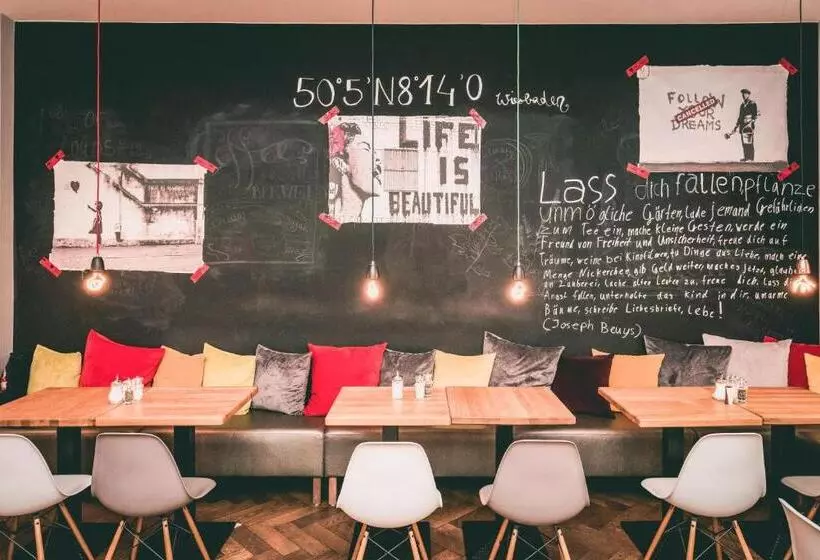 50°5'N8°14'O Wiesbaden
LIFE
IS
BEAUTIFUL
FOLLOW
YOUR
DREAMS
CANCELLED
Lass dich fallen, pflanze
unmögliche Gärten, lade jemand Gefährlichen
zum Tee ein, mache kleine Gesten, werde ein
Freund von Freiheit und Unsicherheit, freue dich auf
Träume, weine bei Kinofilmen, tu Dinge aus Liebe, mach eine
Menge Nickerchen, gib Geld weiter, mach es jetzt, glaube
an Zauberei, lache, alten Leuten zu, freue dich, Lass die
Angst fallen, unterhalte das Kind in dir, umarme
Bäume, schreibe Liebesbriefe, lebe!
(Joseph Beuys)